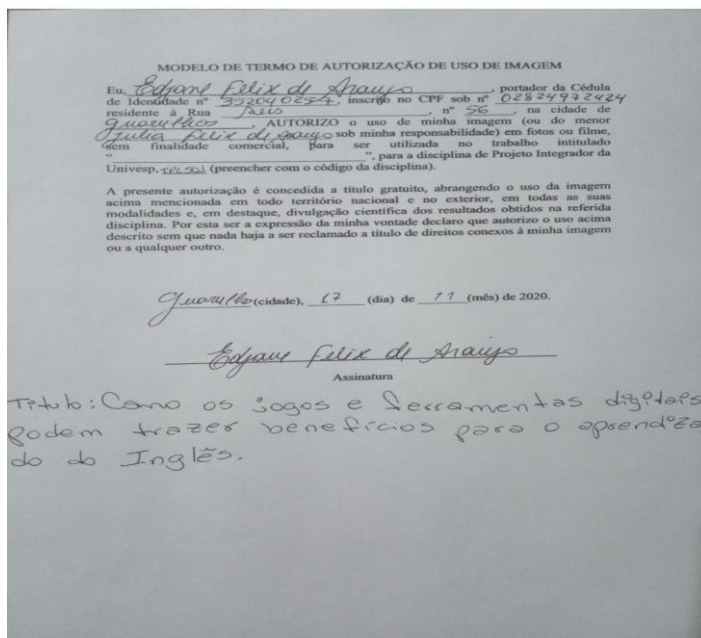 MODELO DE TERMO DE AUTORIZAÇÃO DE USO DE IMAGEM
Eu, Edjane Felix de Araujo, portador da Cédula
de Identidade nº 352040254, inscrito no CPF sob nº 02824972424
residente à Rua, nº 56, na cidade de
Guarulhos, AUTORIZO o uso de minha imagem (ou do menor
Julia Felix de Araujo sob minha responsabilidade) em fotos ou filme,
sem finalidade comercial, para ser utilizada no trabalho intitulado
“ ”, para a disciplina de Projeto Integrador da
Univesp, (preencher com o código da disciplina).
A presente autorização é concedida a título gratuito, abrangendo o uso da imagem
acima mencionada em todo território nacional e no exterior, em todas as suas
modalidades e, em destaque, divulgação científica dos resultados obtidos na referida
disciplina. Por esta ser a expressão da minha vontade declaro que autorizo o uso acima
descrito sem que nada haja a ser reclamado a título de direitos conexos à minha imagem
ou a qualquer outro.
Guarulhos (cidade), 17 (dia) de 11 (mês) de 2020.
Edjane Felix de Araujo
Assinatura
Titulo: Como os jogos e ferramentas digitais
podem trazer benefícios para o aprendiza
do do Inglês.